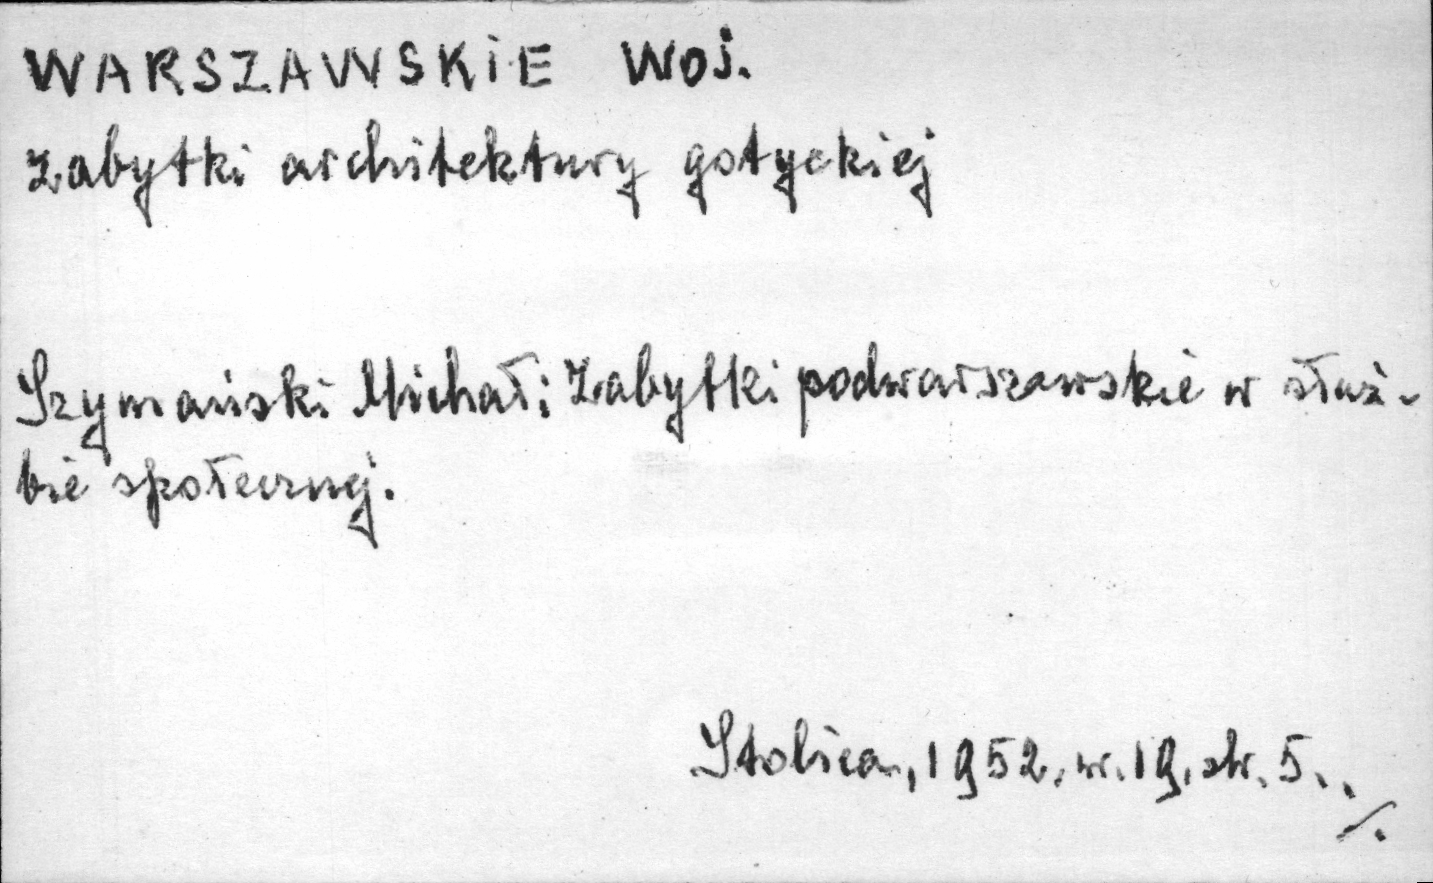 WARSZAWSKiE WOJ.
Zabytki architektury gotyckiej
Szymański Michał: Zabytki podwarszawskie w służ-
bie społecznej.
Stolica, 1952, nr. 19, str. 5.